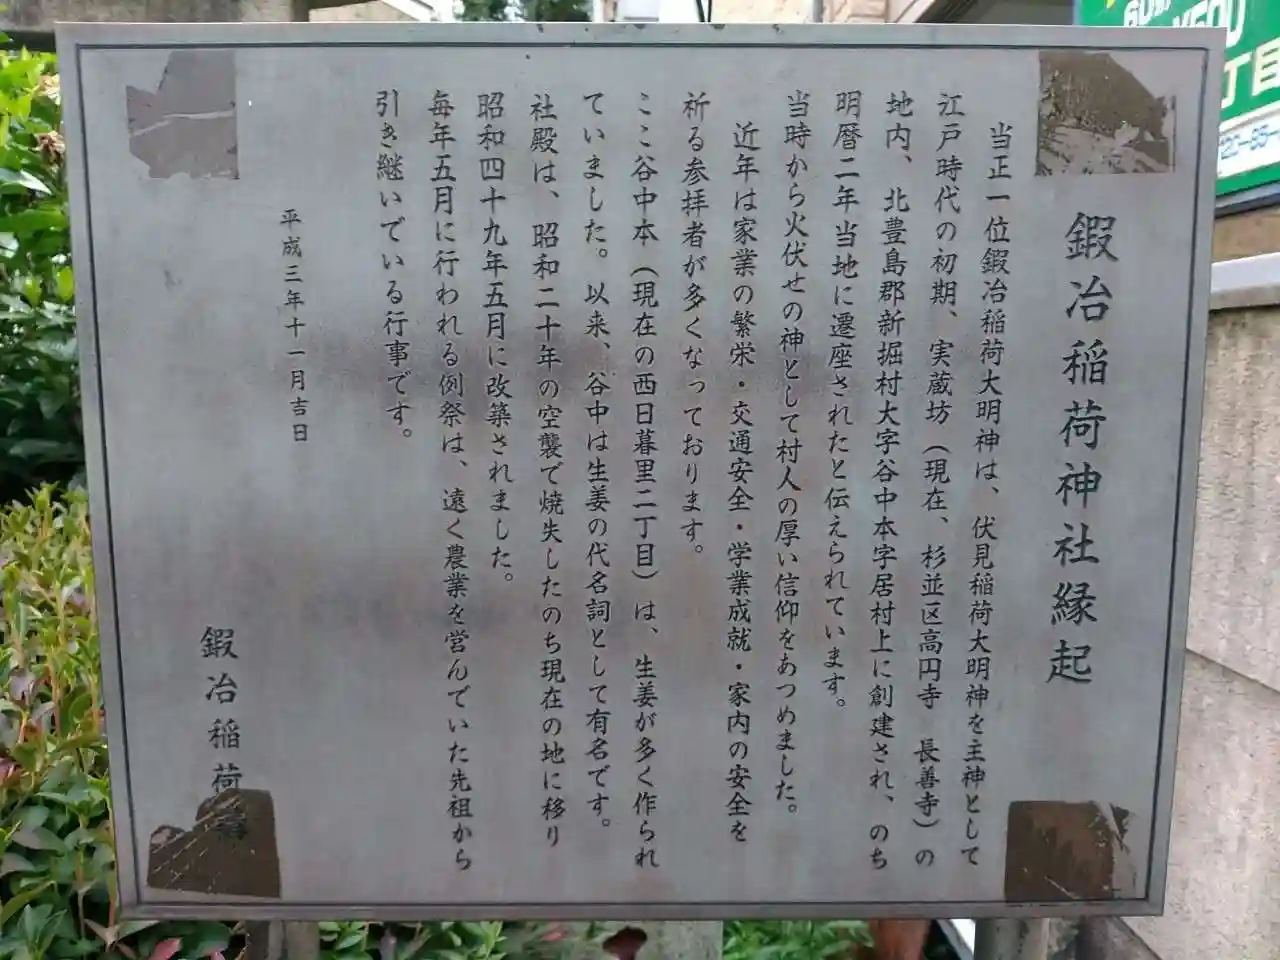 鍜冶稲荷神社縁起
当正一位鍜冶稲荷大明神は、伏見稲荷大明神を主神として
江戸時代の初期、実蔵坊（現在、杉並区高円寺　長善寺）の
地内、北豊島郡新掘村大字谷中本字居村上に創建され、のち
明暦二年当地に遷座されたと伝えられています。
当時から火伏せの神として村人の厚い信仰をあつめました。
近年は家業の繁栄・交通安全・学業成就・家内の安全を
祈る参拝者が多くなっております。
ここ谷中本（現在の西日暮里二丁目）は、生姜が多く作られ
ていました。以来、谷中は生姜の代名詞として有名です。
社殿は、昭和二十年の空襲で焼失したのち現在の地に移り
昭和四十九年五月に改築されました。
毎年五月に行われる例祭は、遠く農業を営んでいた先祖から
引き継いでいる行事です。
平成三年十一月吉日
鍜冶稲荷
60分
¥500
丁目